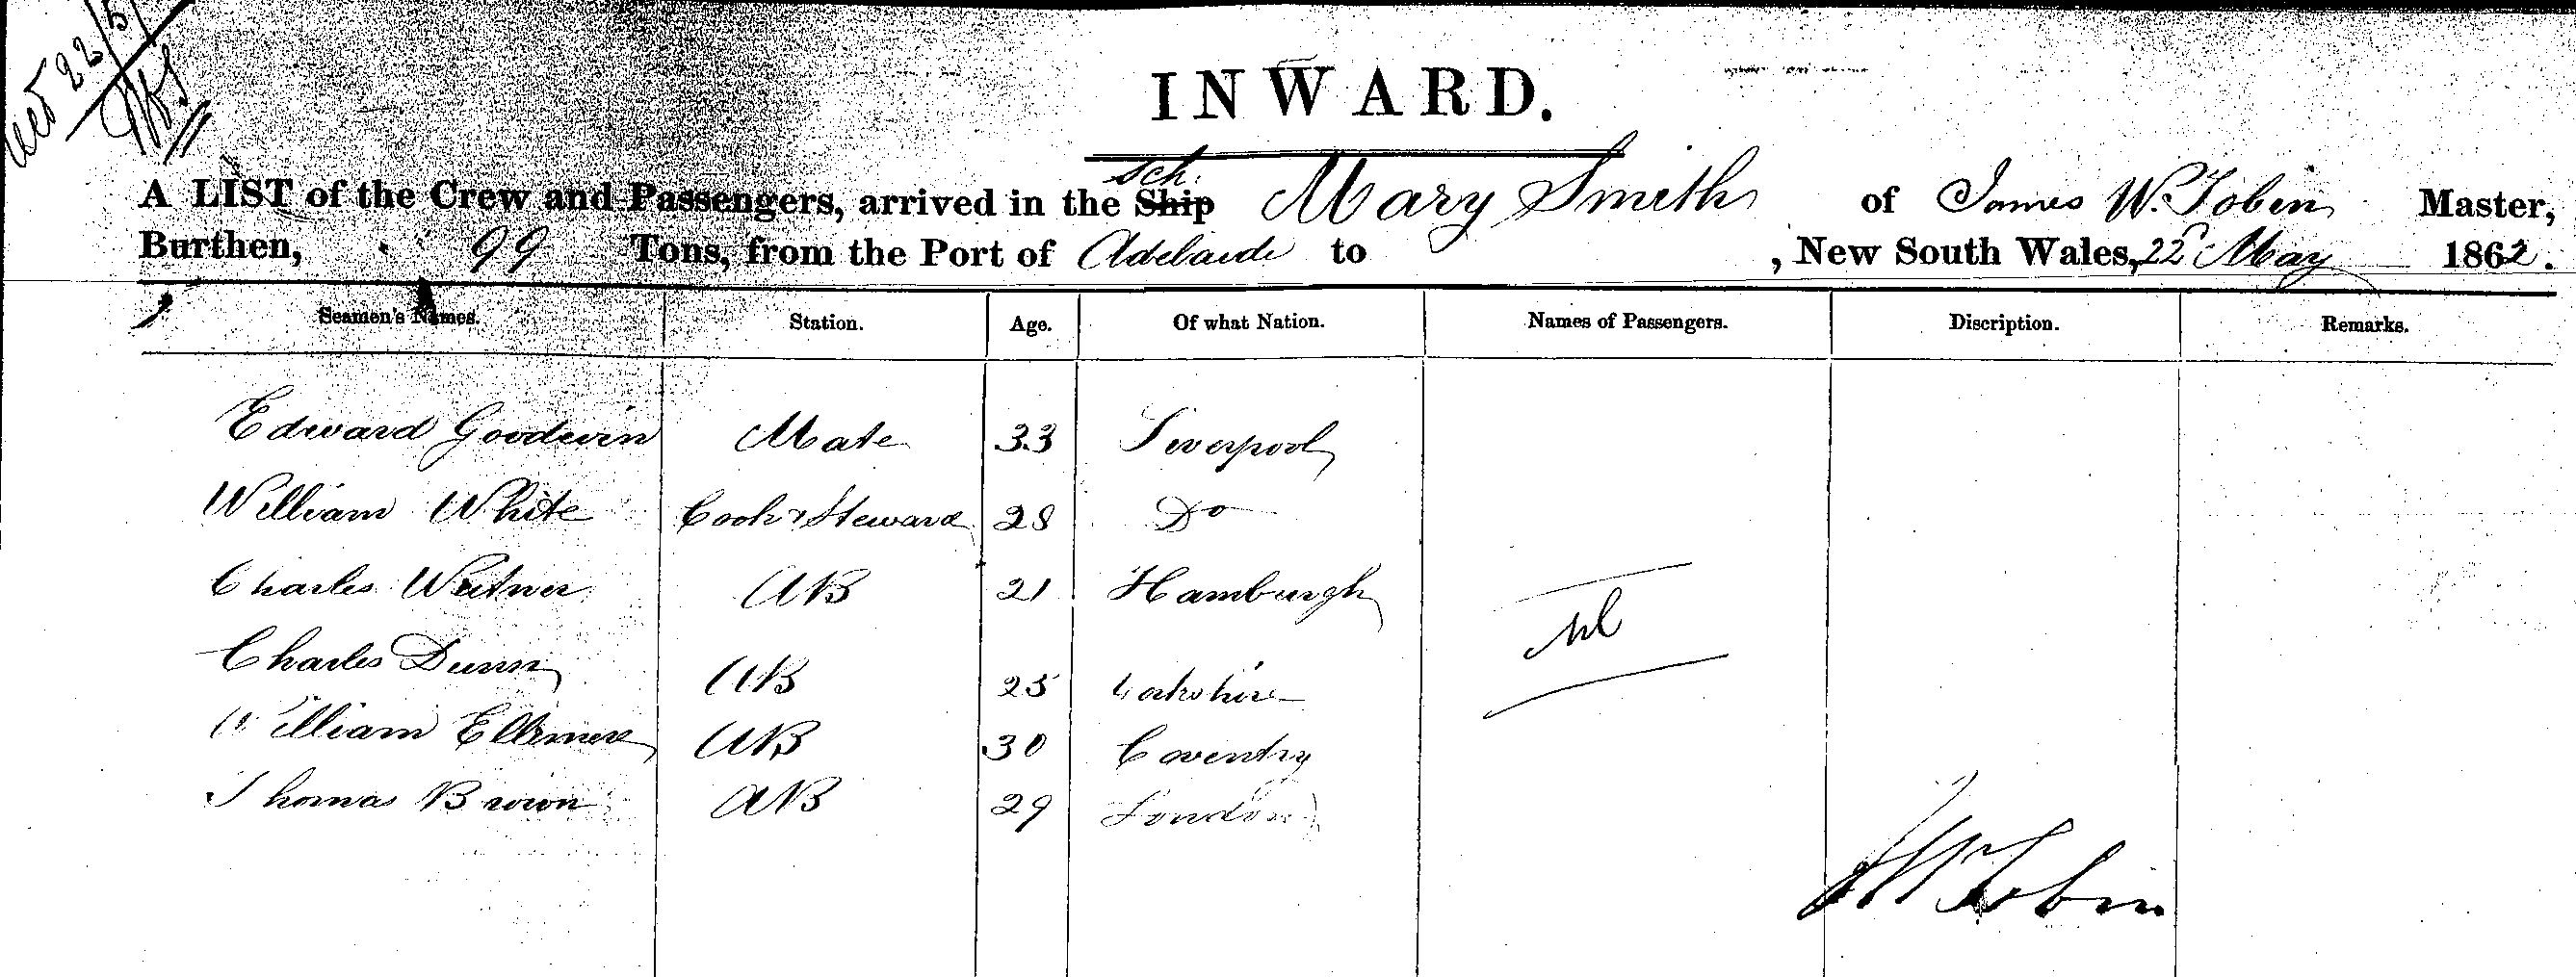 22/5
INWARD.
A LIST of the Crew and Passengers, arrived in the Ship Sch. Mary Smith of James W. Tobin Master,
Burthen, 99 Tons, from the Port of Adelaide to , New South Wales, 22 May 1862.
Seamen's Names. Station. Age. Of what Nation. Names of Passengers. Discription. Remarks.
Edward Goodwin Mate 33 Liverpool
William White Cook & Steward 28 Do
Charles AB 21 Hamburgh
nil
Charles Dunn AB 25 Yorkshire
William Ellsmere AB 30 Coventry
Thomas Brown AB 29 London
J W Tobin